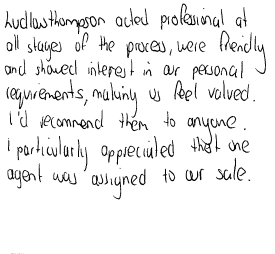 Ludlowthompson acted professional at
all stages of the process, were friendly
and showed interest in our personal
requirements, making us feel valued.
I'd recommend them to anyone.
I particularly appreciated that one
agent was assigned to our sale.